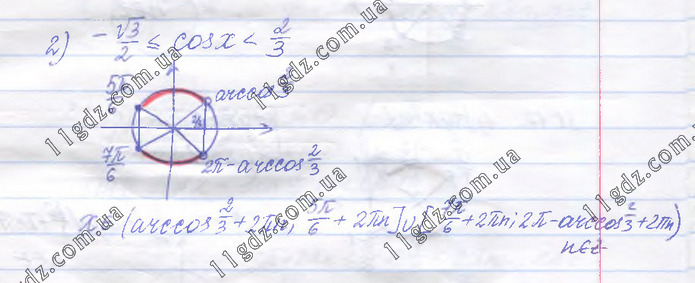 2) -√3/2 ≤ cosx < 2/3
5π/6
arccos 2/3
2/3
7π/6
2π-arccos 2/3
x ∈ (arccos 2/3 + 2πn; 5π/6 + 2πn] ∪ [7π/6 + 2πn; 2π-arccos 2/3 + 2πn)
n∈z
11gdz.com.ua
11gdz.com.ua
11gdz.com.ua
11gdz.com.ua
11gdz.com.ua
11gdz.com.ua
11gdz.com.ua